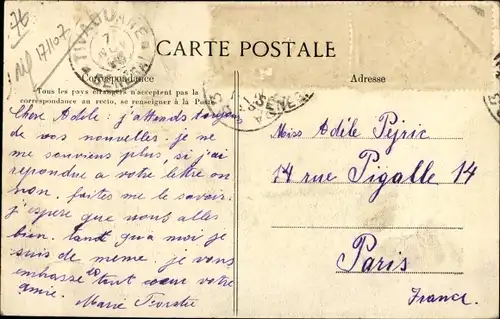 76
TIVAOUANE
SENEGAL
CARTE POSTALE
Correspondance
Adresse
Tous les pays étrangers n'acceptent pas la
correspondance au recto, se renseigner à la Poste
Chere Adéle: j'attends toujours
de vos nouvelles. je ne
me souviens plus si j'ai
repondre a votre lettre ou
non. faites me le savoir.
j'espere que vous alles
bien. tant qu a moi je
suis de meme. je vous
embrasse tout cœur votre
amie.
Marie
Miss Adéle Pejric
14 rue Pigalle 14
Paris
France.